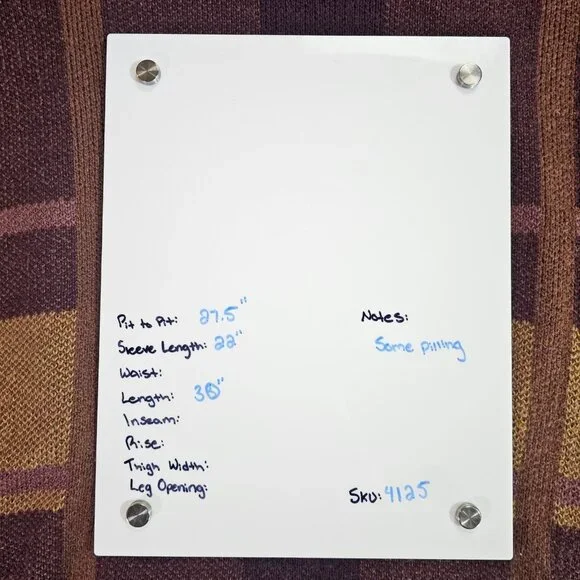 Pit to Pit: 27.5"
Sleeve Length: 22"
Waist:
Length: 30"
Inseam:
Rise:
Thigh Width:
Leg Opening:
Notes:
Some pilling
SKU: 4125